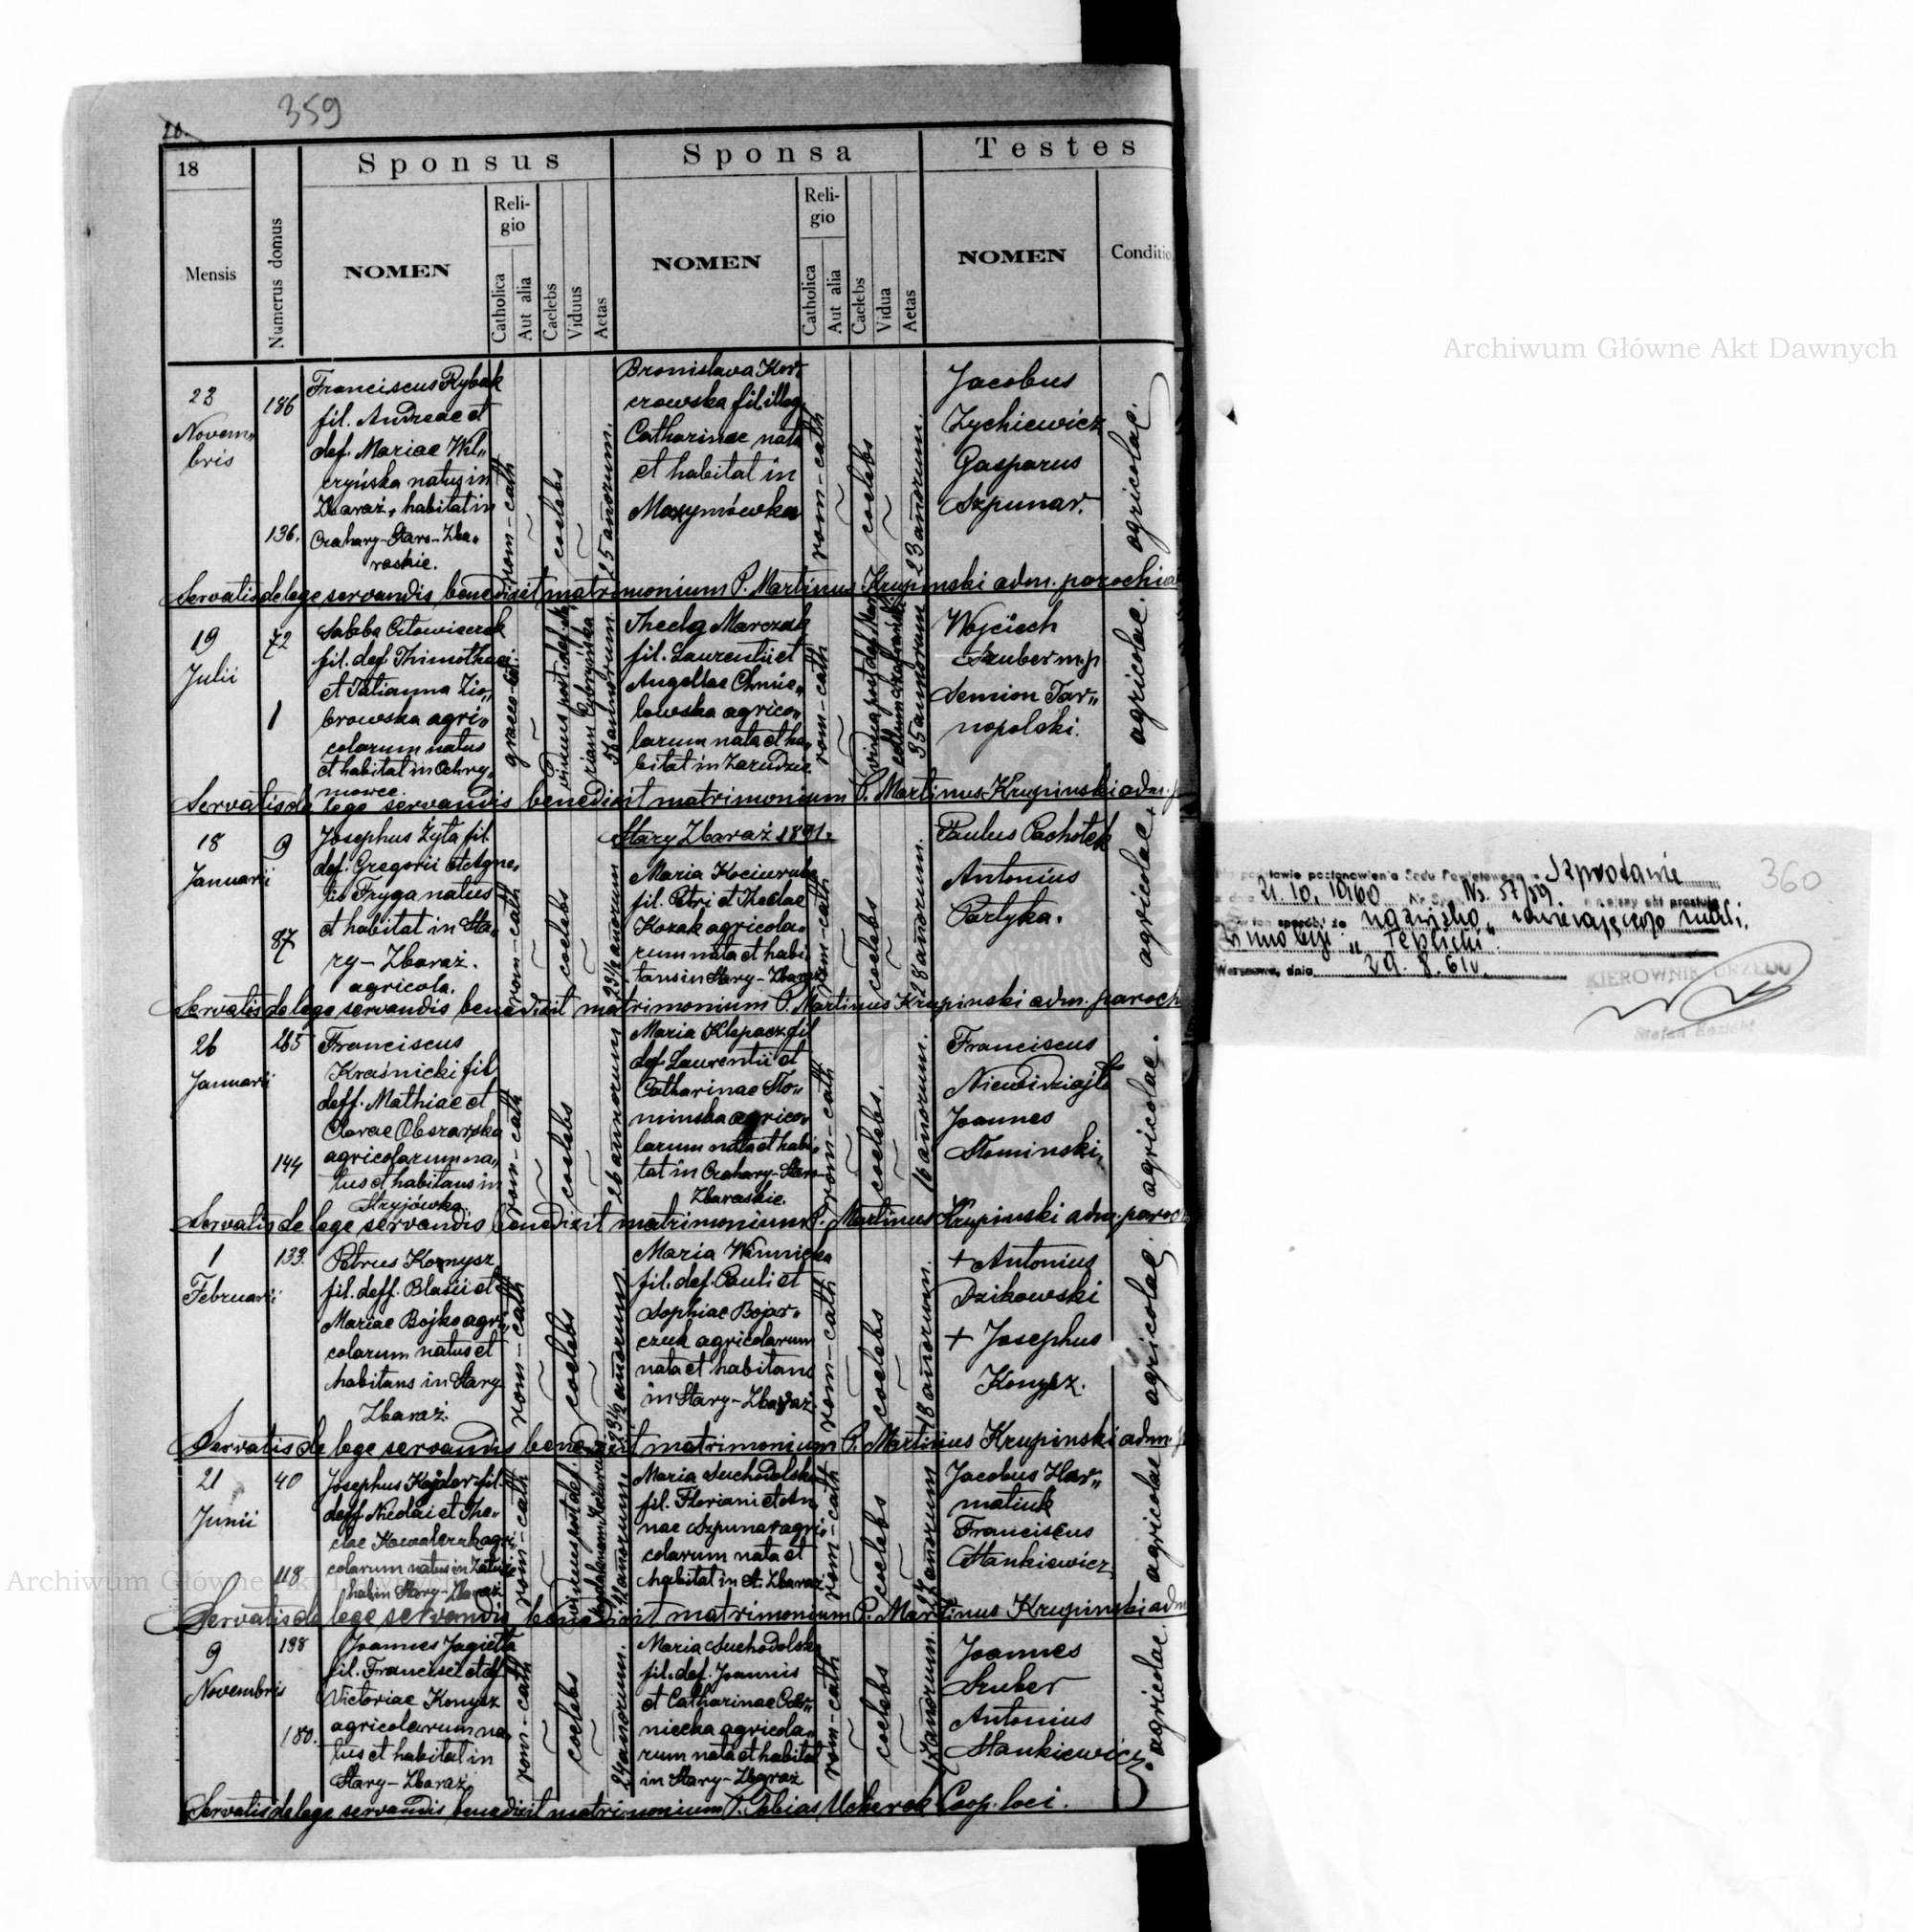 359
18
Sponsus
Sponsa
Testes
Mensis
Numerus domus
NOMEN
Reli-
gio
Catholica
Aut alia
Caelebs
Viduus
Aetas
NOMEN
Reli-
gio
Catholica
Aut alia
Caelebs
Vidua
Aetas
NOMEN
Conditio
23
Novem„
bris
186
136.
Franciscus Rybak
fil. Andreae et
def. Mariae Wil„
czyńska natus in
Zbaraż, habitat in
Czahary-Staro-Zba„
raskie.
rom-cath
coelebs
25 anorum.
Bronislava Kor„
czowska fil. illeg.
Catharinae nata
et habitat in
Maxymówka
rom-cath
coelebs
23 anorum.
Jacobus
Zychiewicz
Gasparus
Szpunar.
agricolae.
Servatis de lege servandis benedixit matrimonium P. Martinus Krupinski adm. parochia
19
Julii
72
1
Sabba
fil. def. Thimothaei
et Tatianna Zio„
browska agri„
colarum natus
et habitat in Ochry„
mowce.
graeco-cat.
viduus post. def.
51 annorum.
Thecla Marczak
fil. Laurentii et
Angellae Chmie„
lowska agrico„
larum nata et ha„
bitat in Zarudzie.
rom-cath
vidua post def.
35 annorum
Wojciech
Szuber m.p
Semion Tar„
nopolski.
agricolae.
Servatis de lege servandis benedixit matrimonium P. Martinus Krupinski adm.
Stary Zbaraż 1891.
18
Januarii
9
87
Josephus Żyta fil.
def. Gregorii et Agne„
tis Fryga natus
et habitat in Sta„
ry-Zbaraż.
agricola.
rom-cath
coelebs
23½ anorum
Maria Kociuruba
fil. Petri et Theclae
Kozak agricola„
rum nata et habi„
tans in Stary-Zbaraż
rom-cath
coelebs
28 anorum.
Paulus Pachołek
Antonius
Partyka.
agricolae.
Servatis de lege servandis benedixit matrimonium P. Martinus Krupinski adm. paroch
26
Januarii
265
144
Franciscus
Kraśnicki fil
deff. Mathiae et
Clarae Obszarska
agricolarum na„
tus et habitans in
Stryjówka.
rom-cath
coelebs
26 annorum
Maria Klepacz fil
def. Laurentii et
Catharinae Sło„
minska agrico„
larum nata et habi„
tat in Czahary-Staro-
Zbaraskie.
rom-cath
coelebs.
16 anorum.
Franciscus
Niewidziajło
Joannes
Słominski.
agricolae.
Servatis de lege servandis benedixit matrimonium P. Martinus Krupinski adm. paroch
1
Februarii
133.
Petrus Konysz
fil. deff. Blasii et
Mariae Bojko agri„
colarum natus et
habitans in Stary
Zbaraż.
rom-cath
coelebs
23½ anorum.
Maria Winnicka
fil. def. Pauli et
Sophiae Bojar„
czuk agricolarum
nata et habitans
in Stary-Zbaraż.
rom-cath
coelebs
18 anorum.
+ Antonius
Dzikowski
+ Josephus
Konysz.
agricolae.
Servatis de lege servandis benedixit matrimonium P. Martinus Krupinski adm.
21
Junii
40
118
Josephus Kajder fil.
deff. Nicolai et The„
clae Kowalczuk agri„
colarum natus in
hab in Stary-Zbaraż
rom-cath
viduus post def.
42 anorum
Maria Suchodolska
fil. Floriani et An„
nae Szpunar agri„
colarum nata et
habitat in St. Zbaraż
rom-cath
coelebs
27 anorum
Jacobus Har„
matiuk
Franciscus
Stankiewicz.
agricolae
Servatis de lege servandis benedixit matrimonium P. Martinus Krupinski adm
9
Novembris
198
180.
Joannes Jagiełła
fil. Francisci et def
Victoriae Konysz
agricolarum na„
tus et habitat in
Stary-Zbaraż.
rom-cath
coelebs
24 anorum.
Maria Suchodolska
fil. def. Joannis
et Catharinae Czer„
niecka agricola„
rum nata et habitat
in Stary-Zbaraż
rom-cath
coelebs
17 anorum.
Joannes
Szuber
Antonius
Stankiewicz.
agricolae.
Servatis de lege servandis benedixit matrimonium P. Tobias Coop. loci.
Archiwum Główne Akt Dawnych
360
Na podstawie postanowienia Sądu Powiatowego w Szprotawie
z dnia 21.10.1960 Nr Ns. 57/59. niniejszy akt prostuje
się w ten sposób, że nazwisko
winno być "Teplicki"
Warszawa, dnia 29.8.61r.
KIEROWNIK URZĘDU
Archiwum Główne Akt Dawnych